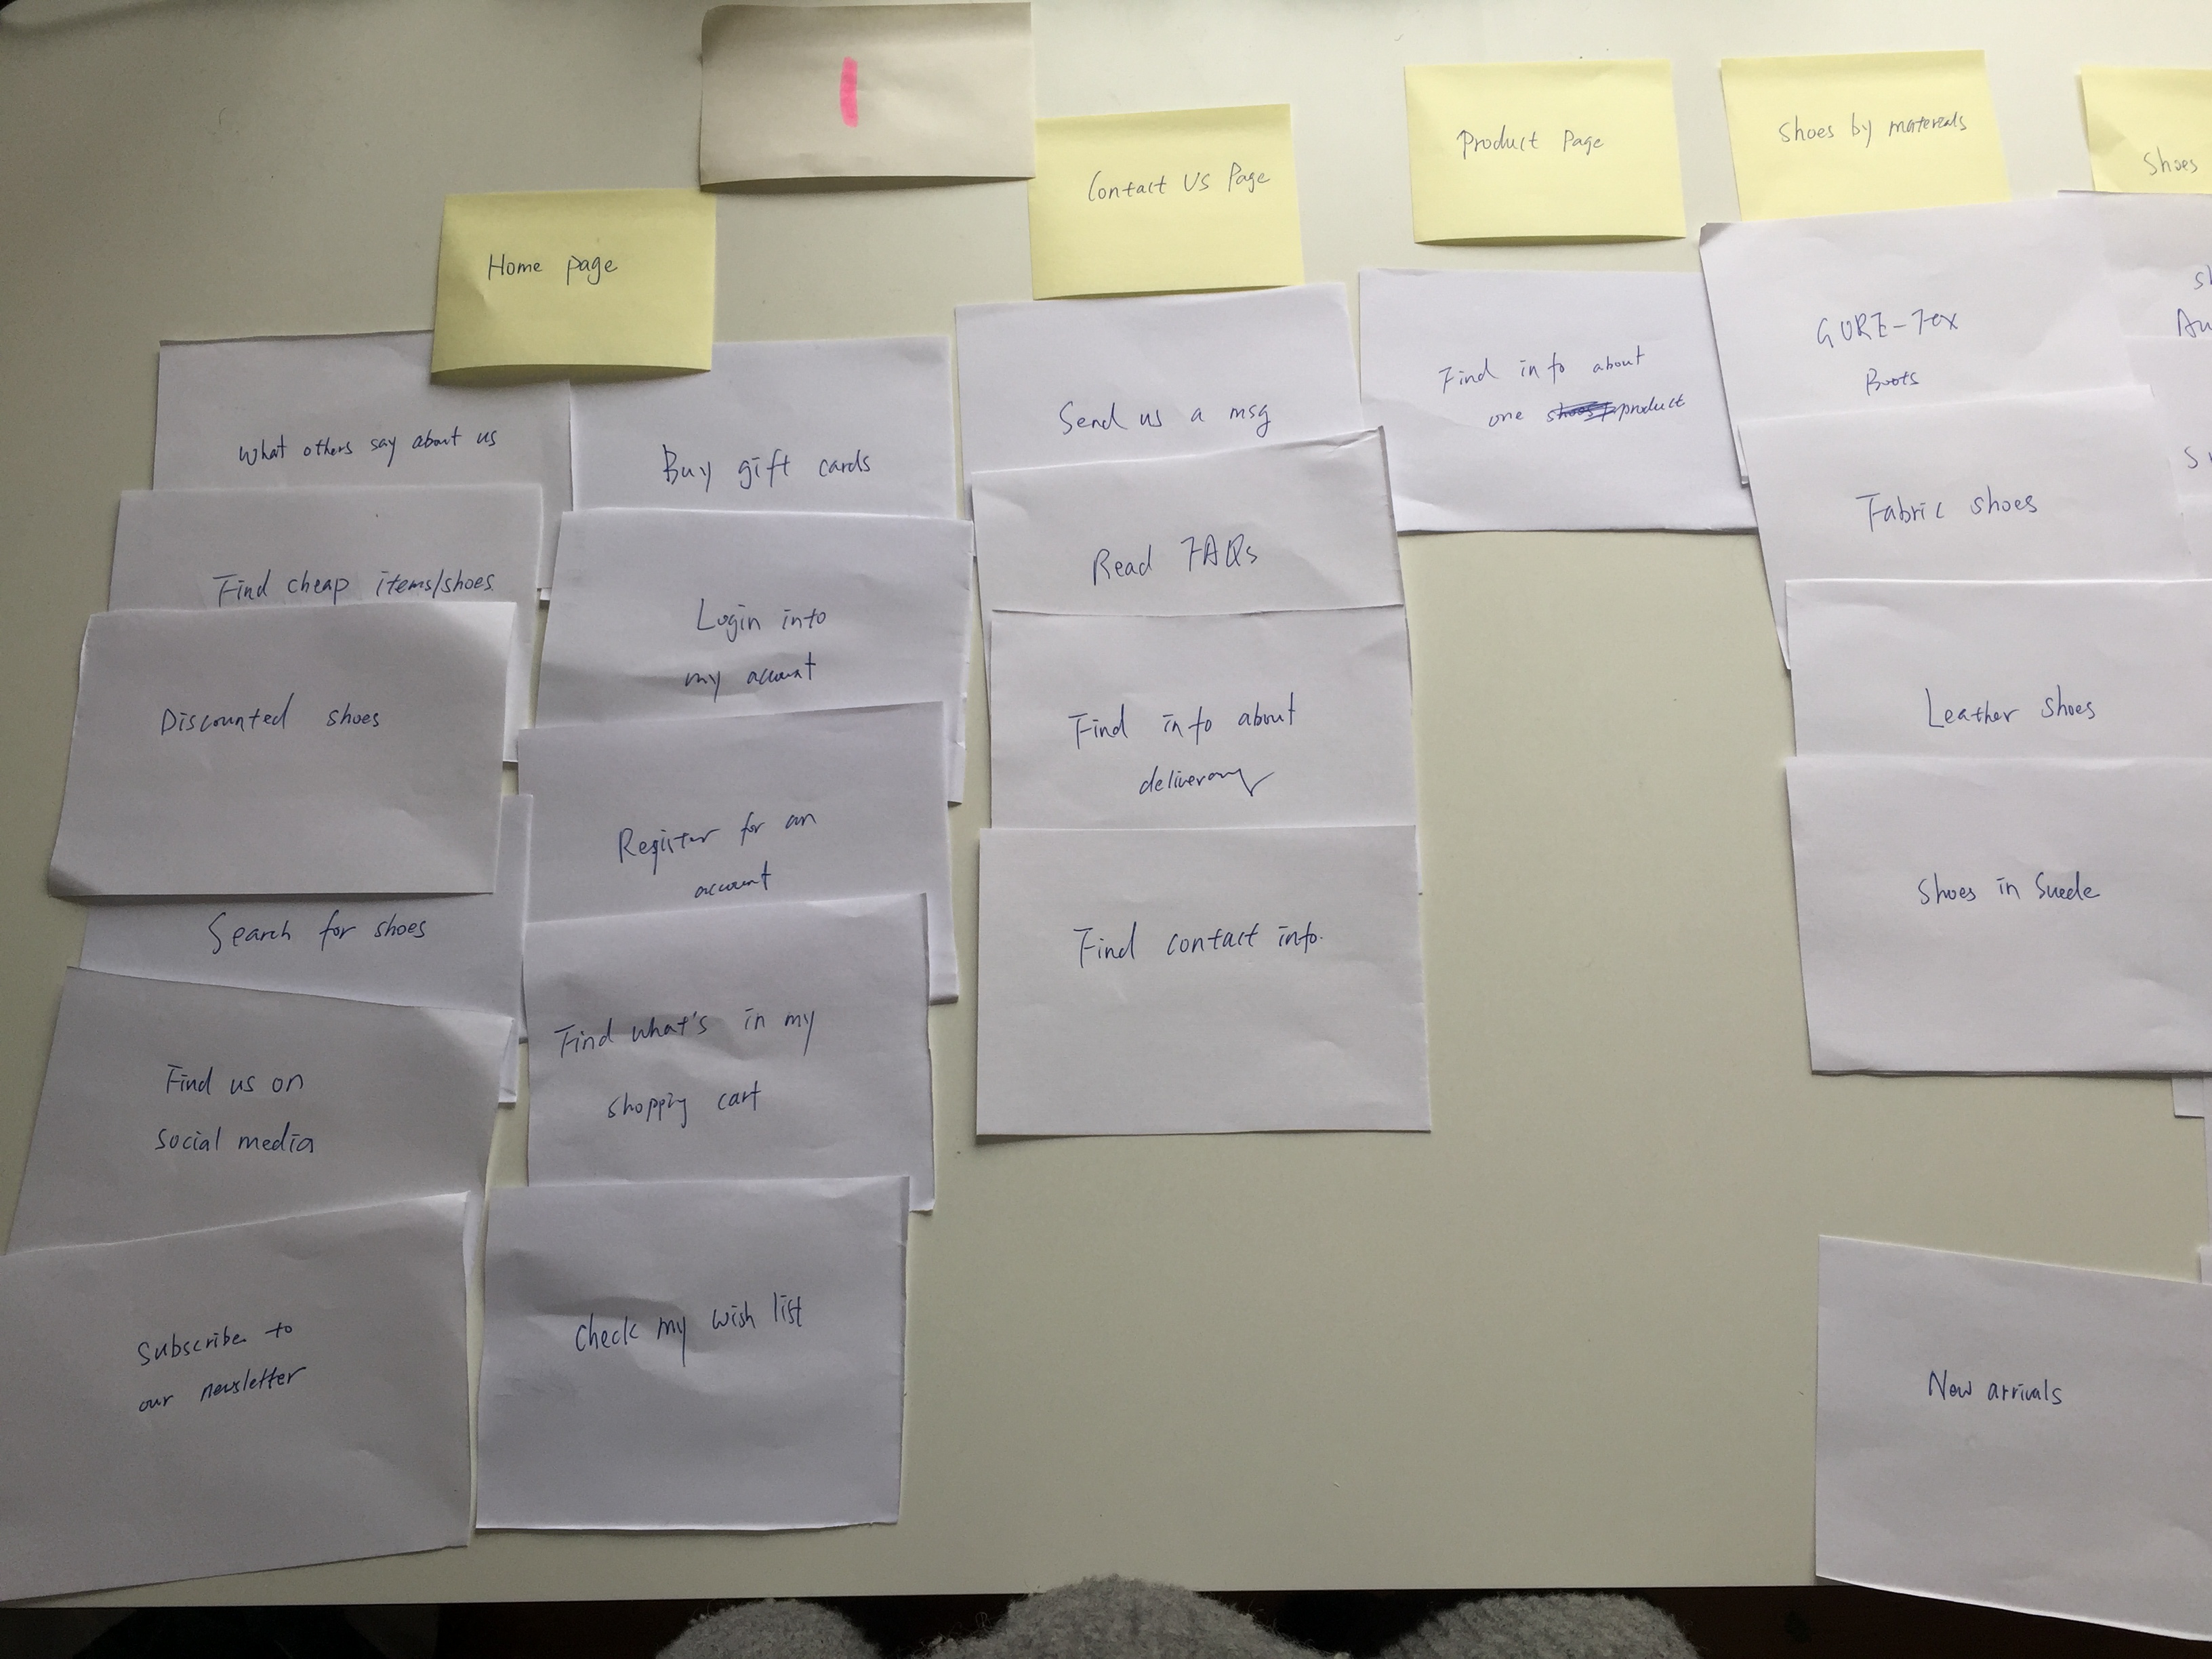 Home page
What others say about us
Find cheap items/shoes
Discounted shoes
Search for shoes
Find us on
social media
Subscribe to
our newsletter
Buy gift cards
Login into
my account
Register for an
account
Find what's in my
shopping cart
Check my wish list
Contact Us Page
Send us a msg
Read FAQs
Find info about
delivery
Find contact info.
Product Page
Find info about
one product
Shoes by materials
GORE-Tex
Boots
Fabric shoes
Leather shoes
Shoes in Suede
New arrivals
Shoes